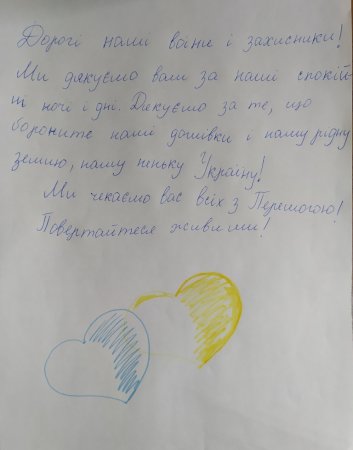 Дорогі наші воїни і захисники!
Ми дякуємо вам за наші спокій-
ні ночі і дні. Дякуємо за те, що
бороните наші домівки і нашу рідну
землю, нашу неньку Україну!
Ми чекаємо вас всіх з Перемогою!
Повертайтеся живими!